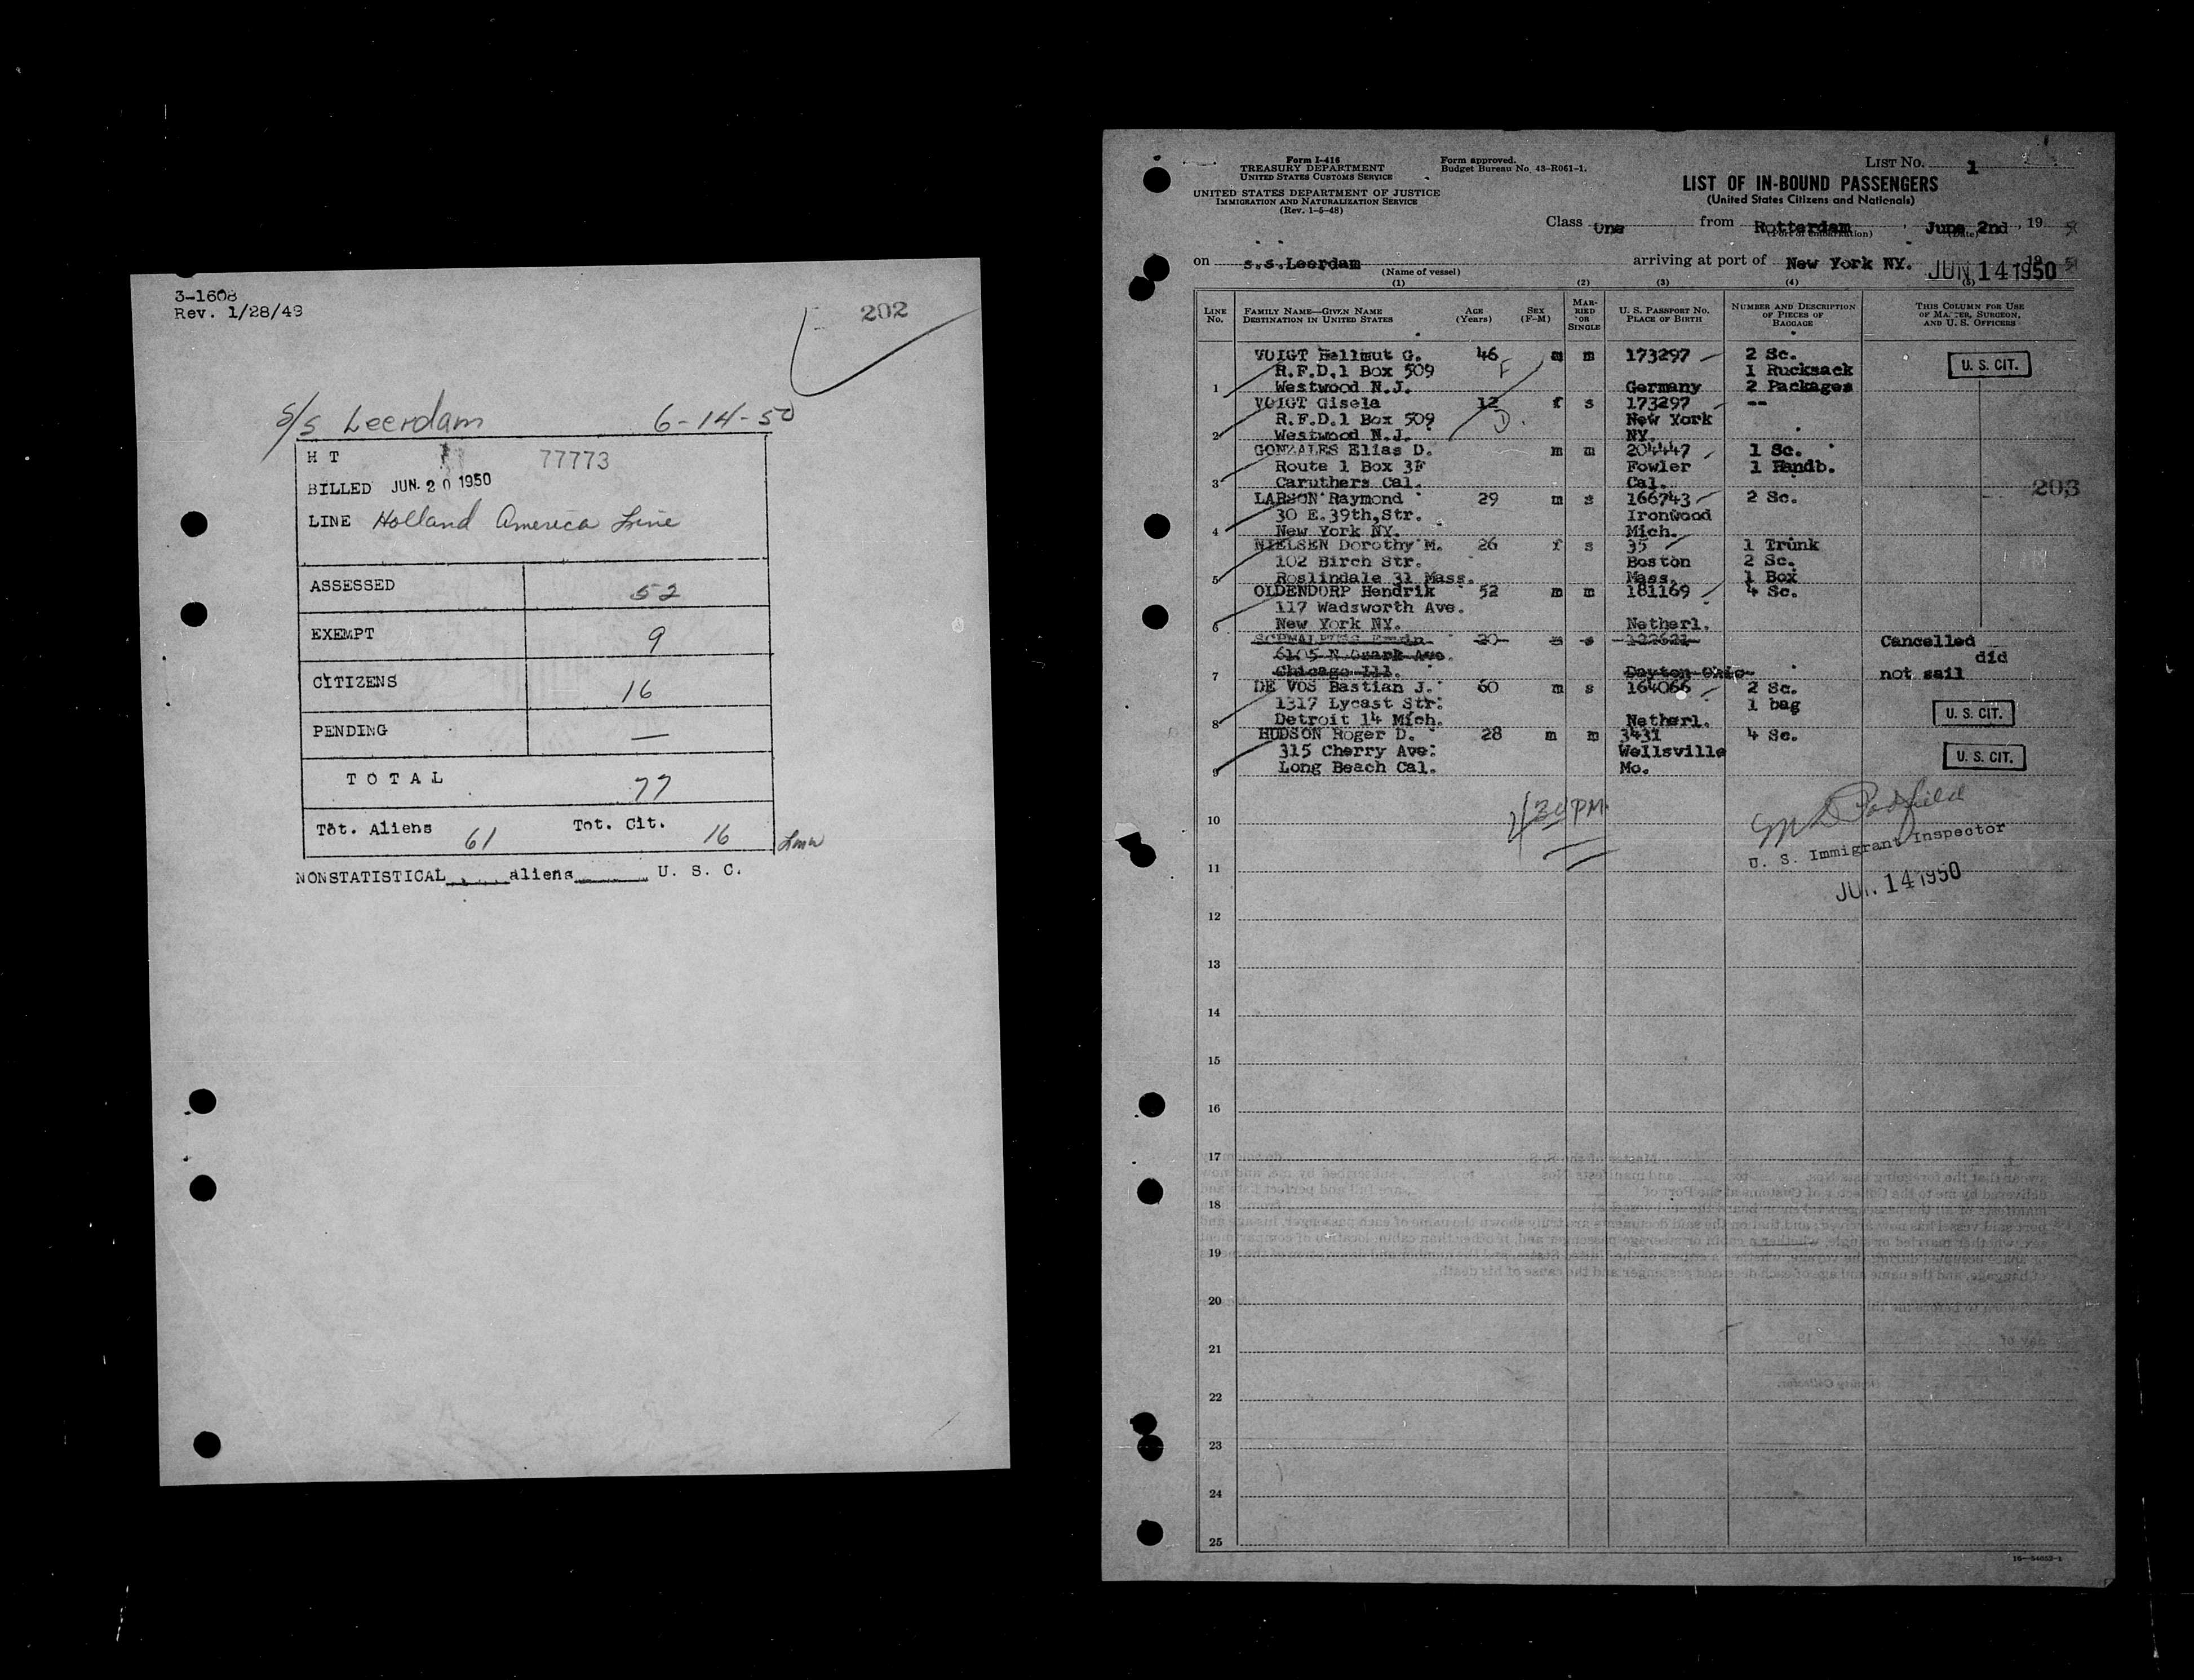 3-1608
Rev. 1/28/49
202
S/S Leerdam 6-14-50
H T 77773
BILLED JUN. 20 1950
LINE Holland America Line
ASSESSED 52
EXEMPT 9
CITIZENS 16
PENDING —
TOTAL 77
Tot. Aliens 61 Tot. Cit. 16
NONSTATISTICAL aliens U. S. C.
Form I-416
TREASURY DEPARTMENT
UNITED STATES CUSTOMS SERVICE
UNITED STATES DEPARTMENT OF JUSTICE
IMMIGRATION AND NATURALIZATION SERVICE
(Rev. 1-5-48)
Form approved.
Budget Bureau No. 43-R061-1.
LIST No. 1
LIST OF IN-BOUND PASSENGERS
(United States Citizens and Nationals)
Class One from Rotterdam, June 2nd, 19 50
(Port of embarkation) (Date)
on s.s.Leerdam arriving at port of New York NY. JUN 14 1950
(Name of vessel)
(1) (2) (3) (4) (5)
LINE No.
FAMILY NAME—GIVEN NAME
DESTINATION IN UNITED STATES
AGE (Years)
SEX (F-M)
MARRIED OR SINGLE
U. S. PASSPORT NO.
PLACE OF BIRTH
NUMBER AND DESCRIPTION OF PIECES OF BAGGAGE
THIS COLUMN FOR USE OF MASTER, SURGEON, AND U. S. OFFICERS
VOIGT Hellmut G. 46 m m 173297 2 Sc. U. S. CIT.
R.F.D.1 Box 509 F 1 Rucksack
1 Westwood N.J. Germany 2 Packages
VOIGT Gisela 12 f s 173297 --
R.F.D.1 Box 509 D. New York
2 Westwood N.J. NY.
GONZALES Elias D. m m 204447 1 Sc.
Route 1 Box 3F Fowler 1 Handb.
3 Caruthers Cal. Cal.
203
LARSON Raymond 29 m s 166743 2 Sc.
30 E.39th,Str. Ironwood
4 New York NY. Mich.
NIELSEN Dorothy M. 26 f s 35 1 Trunk
102 Birch Str. Boston 2 Sc.
5 Roslindale 31 Mass. Mass. 1 Box
OLDENDORP Hendrik 52 m m 181169 4 Sc.
117 Wadsworth Ave.
6 New York NY. Netherl.
20 s Cancelled
6105 N.Ozark Ave. did
7 Chicago Ill. Dayton Ohio not sail
DE VOS Bastian J. 60 m s 164066 2 Sc.
1317 Lycast Str. 1 bag
8 Detroit 14 Mich. Netherl. U. S. CIT.
HUDSON Roger D. 28 m m 3431 4 Sc.
315 Cherry Ave. Wellsville U. S. CIT.
9 Long Beach Cal. Mo.
4 30 PM
10
U. S. Immigrant Inspector
11
JUN. 14 1950
12
13
14
15
16
17
18
19
20
21
22
23
24
25